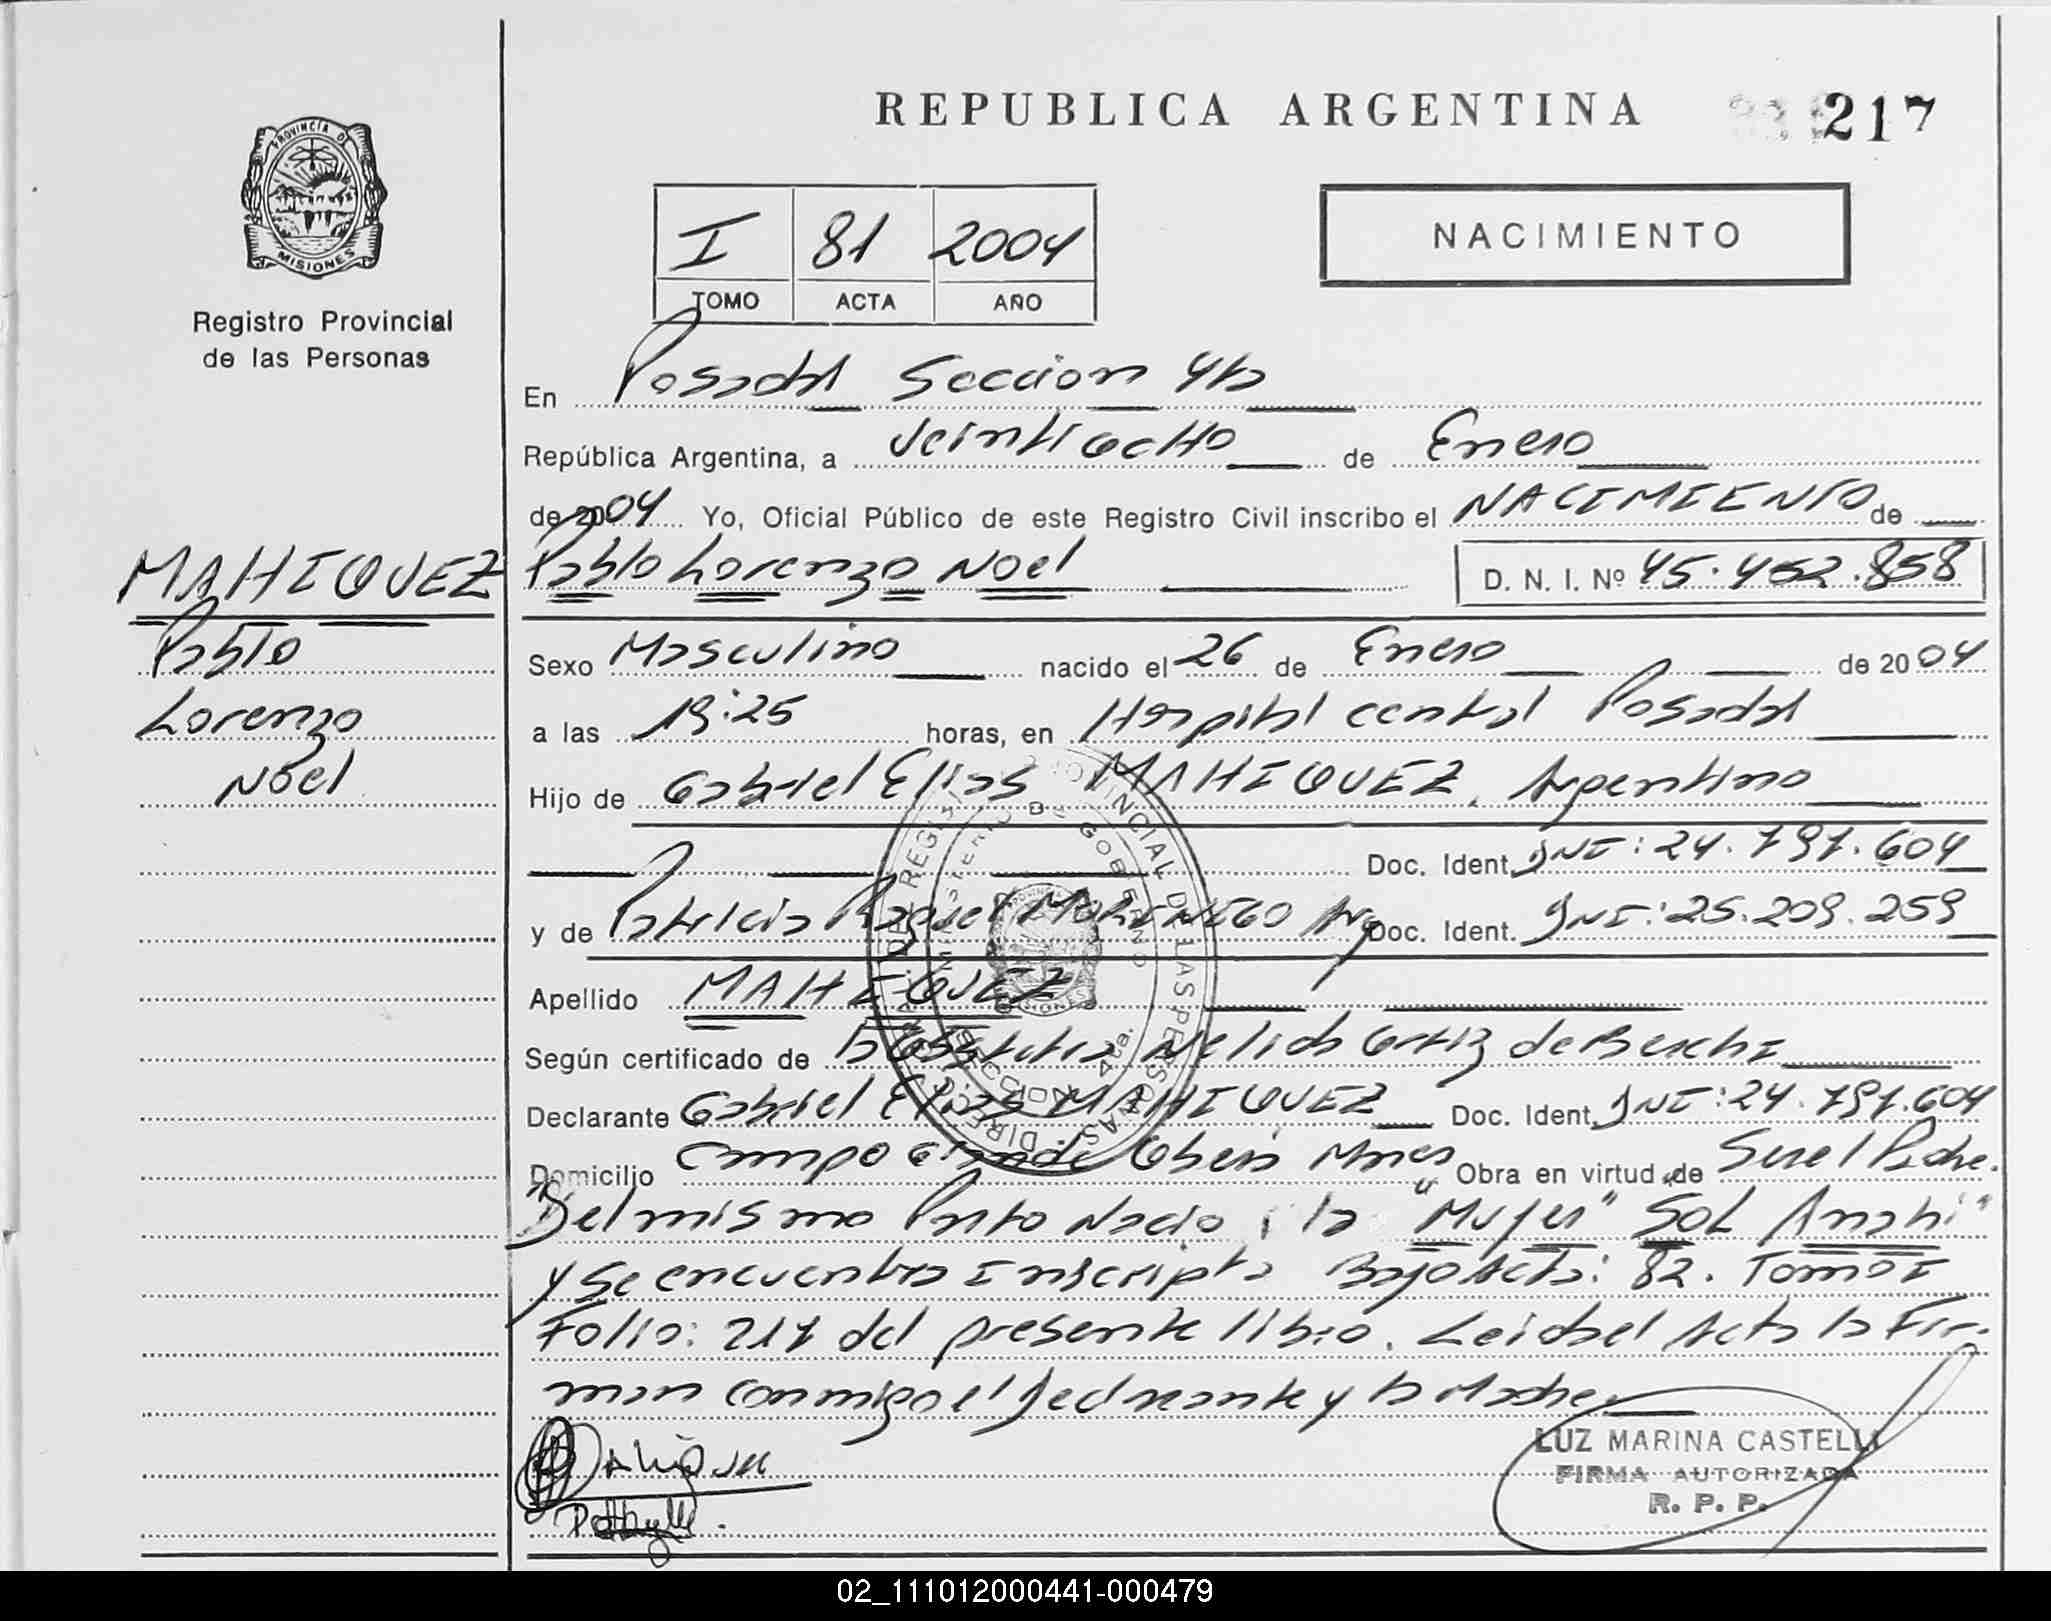 REPUBLICA ARGENTINA
217
PROVINCIA DE
MISIONES
Registro Provincial
de las Personas
I 81 2004
TOMO ACTA AÑO
NACIMIENTO
En Posadas Sección 4ta
República Argentina, a veintiocho de Enero
de 2004 Yo, Oficial Público de este Registro Civil inscribo el NACIMIENTO de
MAHIQUEZ
Pablo
Lorenzo
Noel
Pablo Lorenzo Noel D. N. I. Nº 45.452.858
Sexo Masculino nacido el 26 de Enero de 2004
a las 19:25 horas, en Hospital central Posadas
Hijo de Gabriel Elias MAHIQUEZ, Argentino
Doc. Ident. DNI: 24.797.604
y de Patricia Raquel MORINIGO Arg Doc. Ident. DNI: 25.209.259
Apellido MAHIQUEZ
Según certificado de Obstetra Nelida Ortiz de
Declarante Gabriel Elias MAHIQUEZ Doc. Ident. DNI: 24.797.604
Domicilio Campo Grande Obera Mnes Obra en virtud de Ser el Padre.
Del mismo Parto Nacio la "Mujer" SOL Anahi"
y se encuentra Inscripta Bajo Acta: 82. Tomo I
Folio: 217 del presente libro. Leida el Acta la Fir-
man conmigo el Declarante y la Madre
LUZ MARINA CASTELLI
FIRMA AUTORIZADA
R. P. P.
DIRECCION GRAL. DE REGISTRO PROVINCIAL DE LAS PERSONAS
MINISTERIO DE GOBIERNO
SECCION 4ta.
02_111012000441-000479